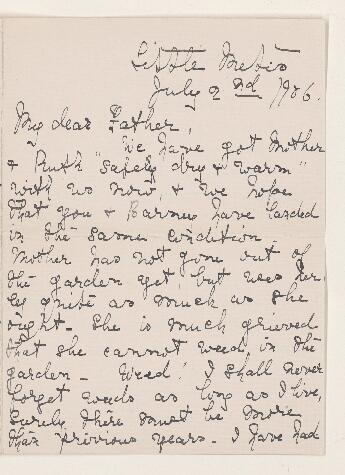 Little Metis
July 2nd 1906.
My dear Father,
We have got Mother
& Ruth "safely dry & warm"
with us now, & we hope
that you & Barnes have landed
in the same condition
Mother has not gone out of
the garden yet, but uses her
leg quite as much as she
ought - She is much grieved
that she cannot weed in the
garden - Weed! I shall never
forget weeds as long as I live,
surely there must be more
than previous years - I have had